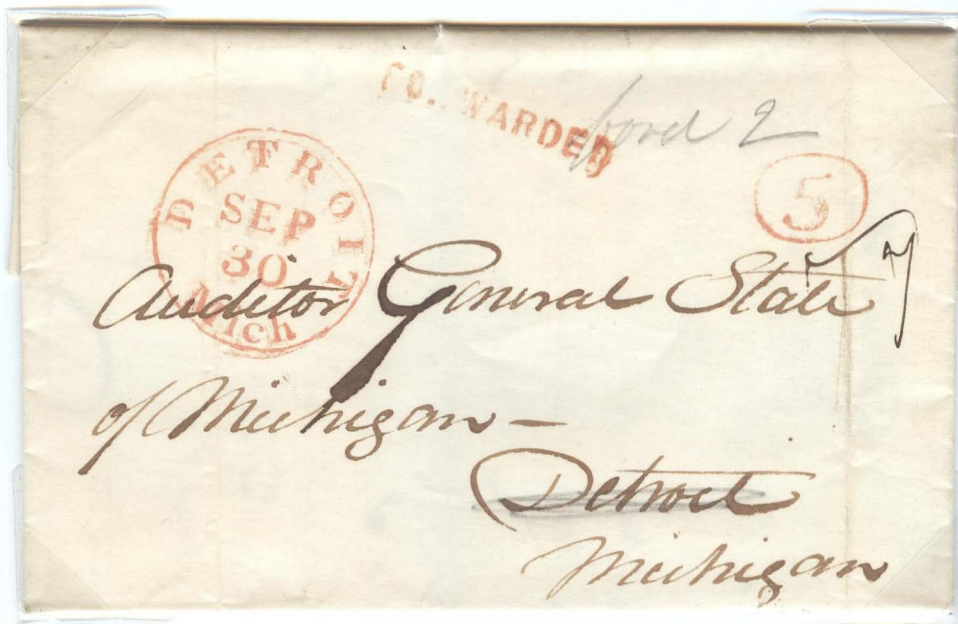 FO. WARDED
2
5
DETROIT
SEP
30
Mich
Auditor General State
of Michigan -
Detroit
Michigan